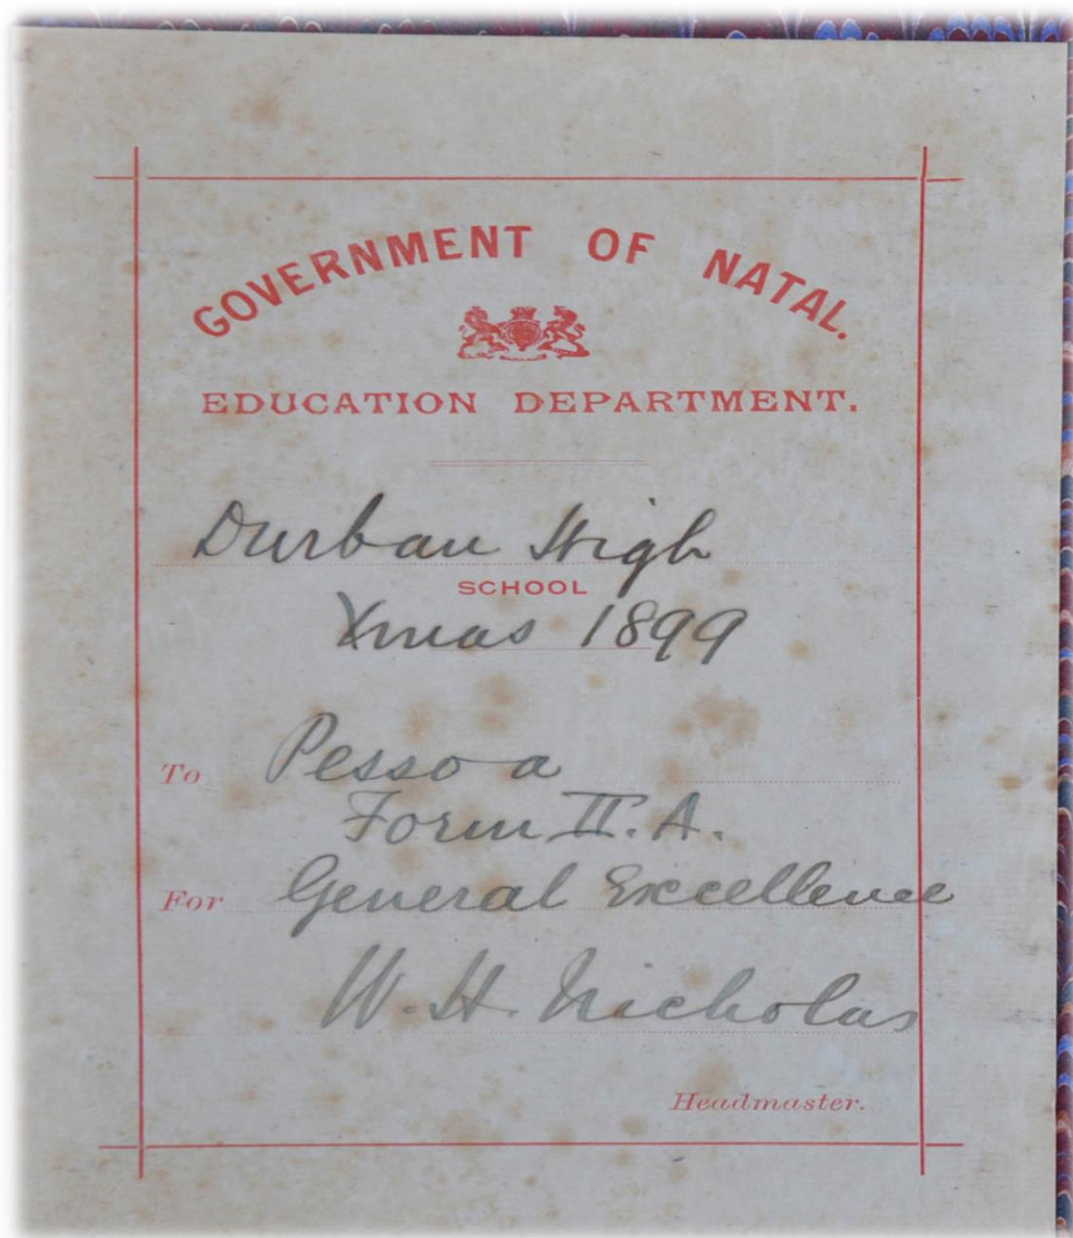 GOVERNMENT OF NATAL.
EDUCATION DEPARTMENT.
Durban High
SCHOOL
Xmas 1899
To Pessoa
Form II.A.
For General Excellence
W. H. Nicholas
Headmaster.